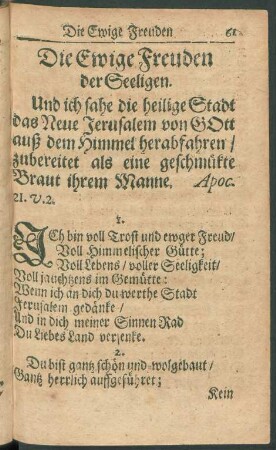 Die Ewige Freuden 61
Die Ewige Freuden
der Seeligen.
Und ich sahe die heilige Stadt
das Neue Jerusalem von GOtt
auß dem Himmel herabfahren /
zubereitet als eine geschmükte
Braut ihrem Manne. Apoc.
21. v. 2.
1.
ICh bin voll Trost und ewger Freud/
Voll Himmelischer Gütte;
Voll Lebens / voller Seeligkeit/
Voll jauchtzens im Gemütte:
Wenn ich an dich du werthe Stadt
Jerusalem gedänke /
Und in dich meiner Sinnen Rad
Du Liebes Land versenke.
2.
Du bist gantz schön und wolgebaut/
Gantz herrlich auffgeführet;
Kein